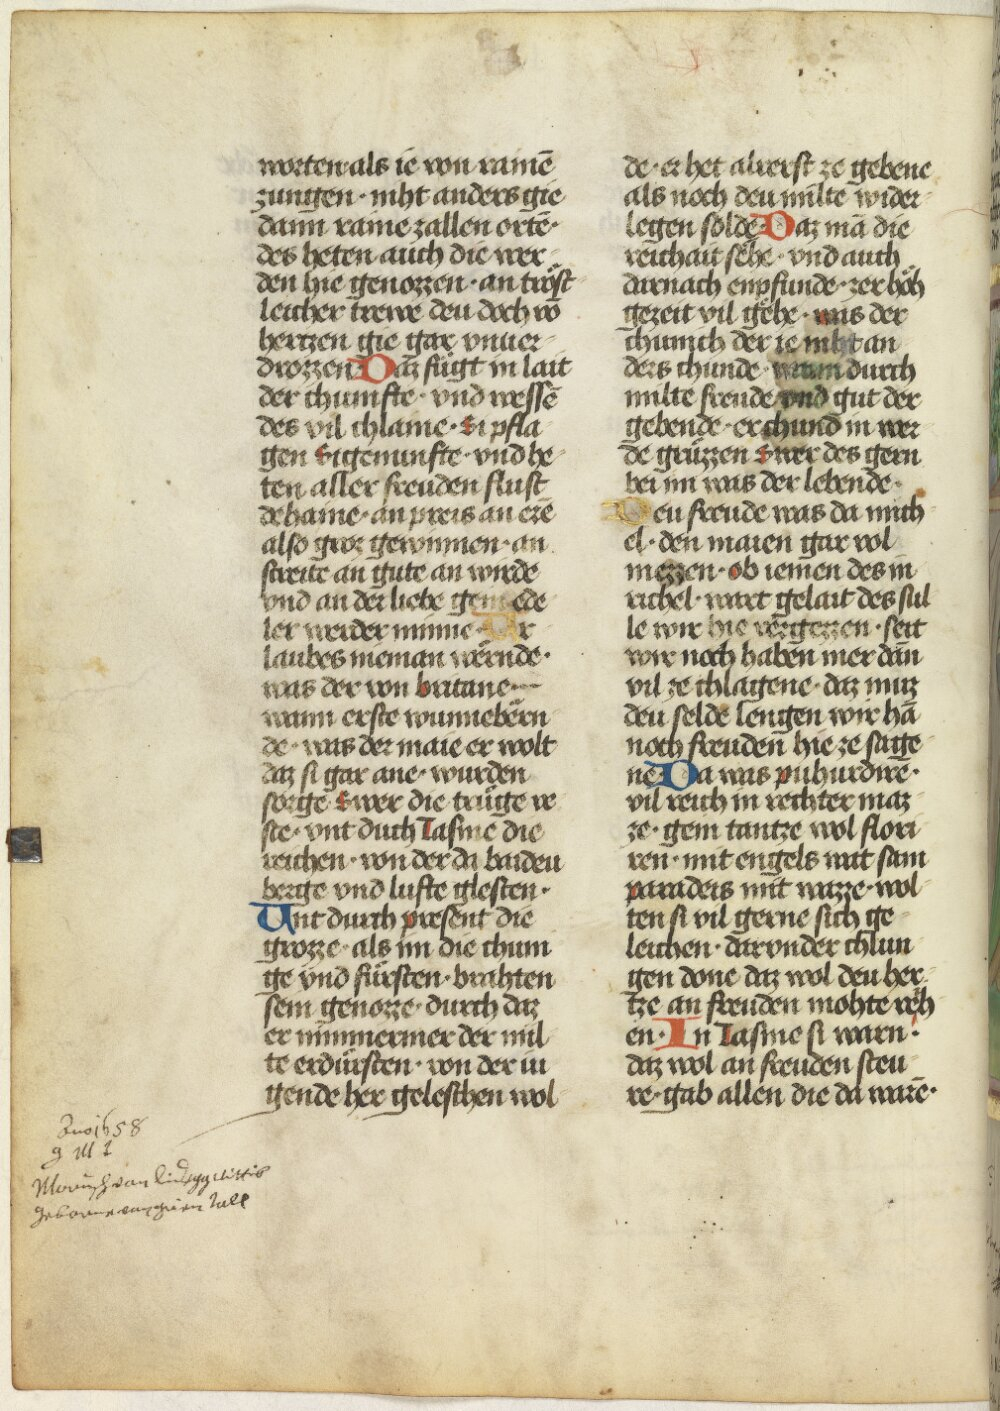 worten·als ie von rainē
zungen·niht anders gie
dann raine zallen ortē·
des heten auch die wer
den hie genozzen·an tröst
leicher trewe deu doch vō
hertzen gie gar vnuer
drozzen·Daz fügt in lait
der chumfte·vnd wessē
des vil chlaine·Si pfla
gen Sigenunfte·vnd he
ten aller freuden flust
dehaine·an preis an erē
also groz gewinnen·an
streite an gute an wirde
vnd an der liebe gem ede
ler werder minne·Vr
laubes nieman wernde·
was der von britane·
wann erste wunnebern
de·was der maie er wolt
daz si gar ane·wurden
sorge Swer die trüge ve
ste·vnt durh Tasme die
reichen·von der da baideu
berge vnd lufte glesten·
Vnt durch present die
grozze·als im die chuni
ge vnd fürsten·brahten
sein genozze·durch daz
er nimmermer der mil
te erdürsten·von der iu
gende her geleschen wol
de·er het alrerst ze gebene
als noch deu milte wider
legen solde·Daz mā die
reichait sehe·vnd auch
darnach enpfunde·zer hôh
gezeit vil gehe·was der
chunich der ie niht an
ders chunde·wann durch
milte freude vnd gut der
gebende·er chund in wer
de grüzzen Swer des gern
bei im was der lebende·
Deu freude was da mich
el·den maien gar wol
mezzen·ob iemen des in
richel·wart gelait des sul
le wir hie vergezzen·seit
wir noch haben mer dān
vil ze chlagene·daz muz
deu selde lengen wir hā
noch freuden hie ze sage
ne·Da was puhurdirē·
vil reich in rechter maz
ze·gein tantze wol flori
ren·mit engels wat sam
paradeis mit wazze·wol
ten si vil gerne sich ge
leichen·darvnder chlun
gen done daz wol deu her
tze an freuden mohte reh
en·In Tasme si warn·
daz wol an freuden steu
re·gab allen die da warē·
1658
g M
geborne von